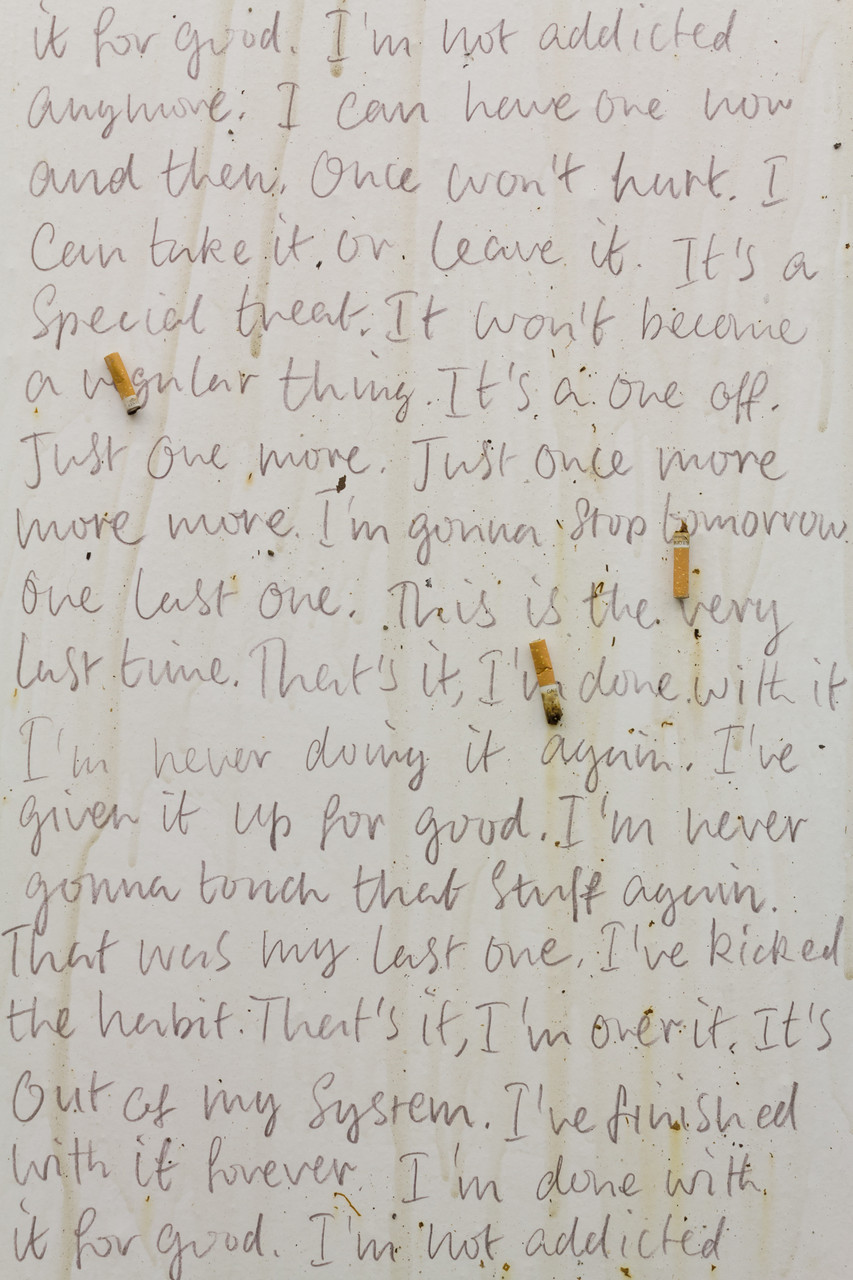 it for good. I'm not addicted
anymore. I can have one now
and then. Once won't hurt. I
Can take it or leave it. It's a
Special treat. It won't become
a regular thing. It's a one off.
Just One more. Just once more
more more. I'm gonna Stop tomorrow
One last one. This is the very
last time. That's it, I'm done with it
I'm never doing it again. I've
given it up for good. I'm never
gonna touch that Stuff again.
That was my last one. I've kicked
the habit. That's it, I'm over it. It's
Out of my System. I've finished
with it forever. I'm done with
it for good. I'm not addicted